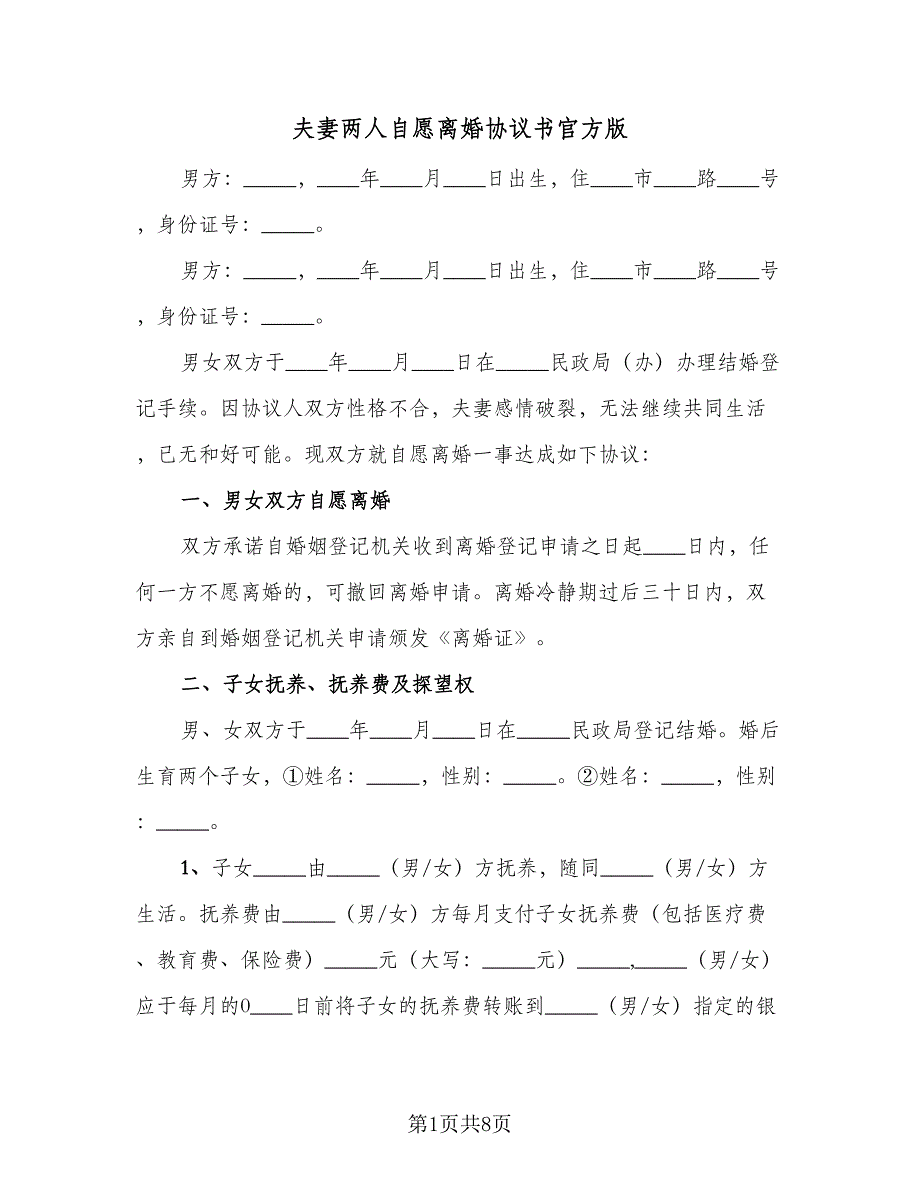 夫妻两人自愿离婚协议书官方版
男方：_____，____年____月____日出生，住____市____路____号
，身份证号：_____。
男方：_____，____年____月____日出生，住____市____路____号
，身份证号：_____。
男女双方于____年____月____日在_____民政局（办）办理结婚登
记手续。因协议人双方性格不合，夫妻感情破裂，无法继续共同生活
，已无和好可能。现双方就自愿离婚一事达成如下协议：
一、男女双方自愿离婚
双方承诺自婚姻登记机关收到离婚登记申请之日起____日内，任
何一方不愿离婚的，可撤回离婚申请。离婚冷静期过后三十日内，双
方亲自到婚姻登记机关申请颁发《离婚证》。
二、子女抚养、抚养费及探望权
男、女双方于____年____月____日在_____民政局登记结婚。婚后
生育两个子女，①姓名：_____，性别：_____。②姓名：_____，性别
：_____。
1、子女_____由_____（男/女）方抚养，随同_____（男/女）方
生活。抚养费由_____（男/女）方每月支付子女抚养费（包括医疗费
、教育费、保险费）_____元（大写：_____元）_____,_____（男/女）
应于每月的0____日前将子女的抚养费转账到_____（男/女）指定的银
第1页共8页